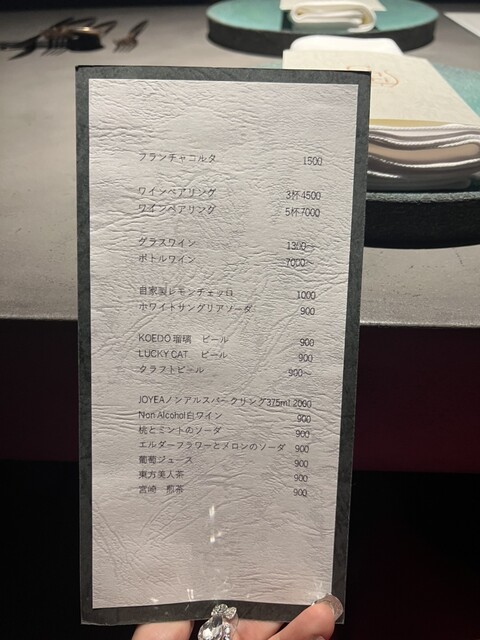 フランチャコルタ 1500
ワインペアリング 3杯4500
ワインペアリング 5杯7000
グラスワイン 1300～
ボトルワイン 7000～
自家製レモンチェッロ 1000
ホワイトサングリアソーダ 900
KOEDO 瑠璃 ビール 900
LUCKY CAT ビール 900
クラフトビール 900～
JOYEAノンアルスパークリング375ml 2000
Non Alcohol白ワイン 900
桃とミントのソーダ 900
エルダーフラワーとメロンのソーダ 900
葡萄ジュース 900
東方美人茶 900
宮崎 煎茶 900